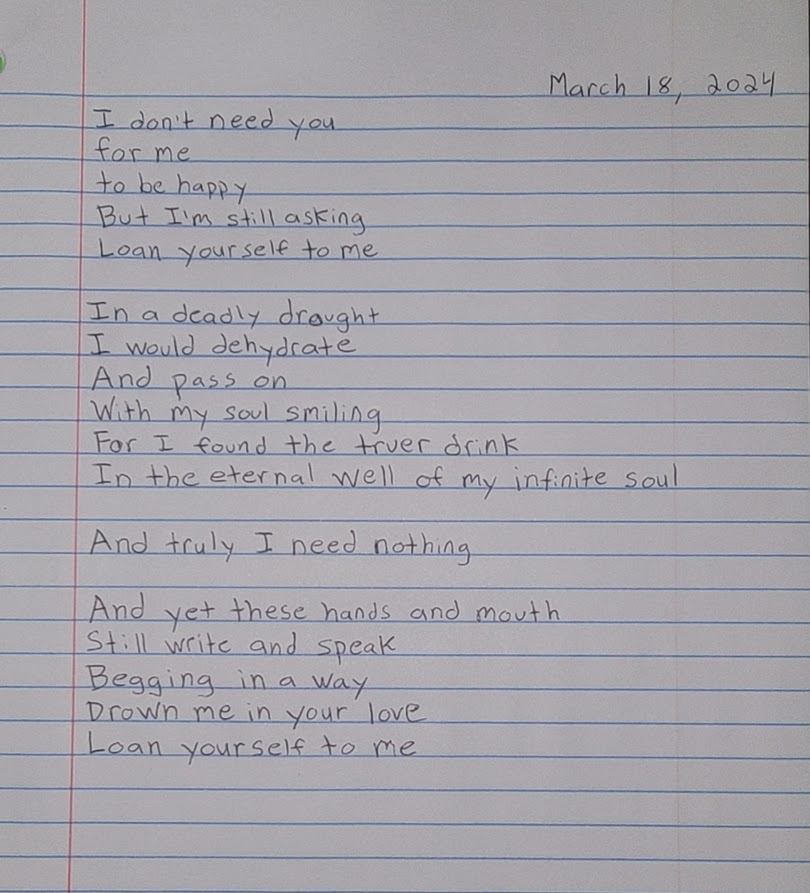 March 18, 2024
I don't need you
for me
to be happy
But I'm still asking
Loan yourself to me
In a deadly drought
I would dehydrate
And pass on
With my soul smiling
For I found the truer drink
In the eternal well of my infinite soul
And truly I need nothing
And yet these hands and mouth
Still write and speak
Begging in a way
Drown me in your love
Loan yourself to me